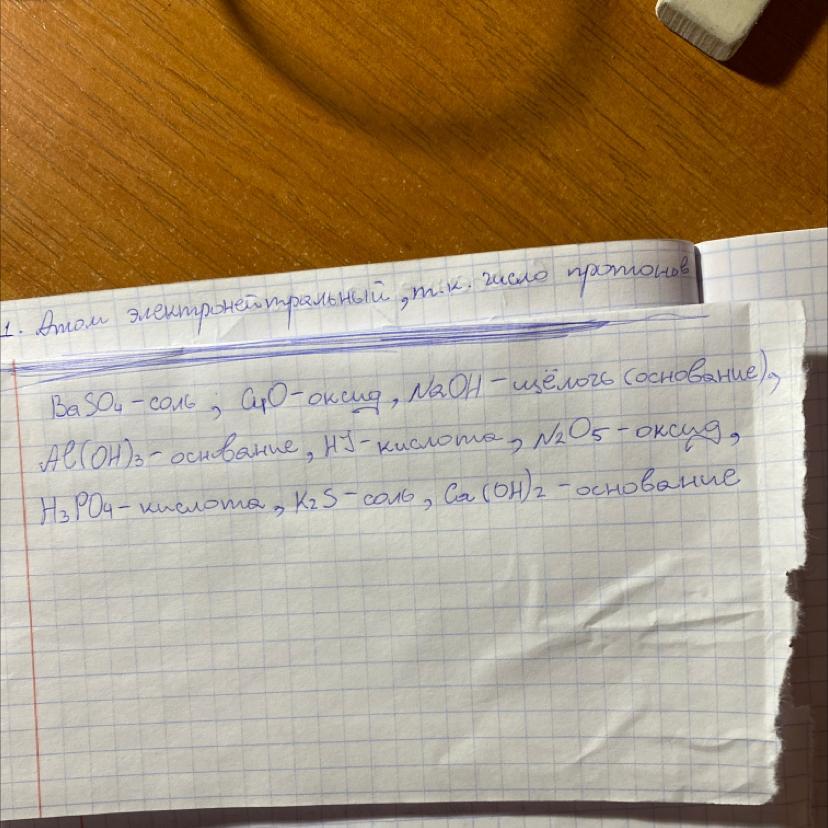 1. Атом электронейтральный, т.к. число протонов
BaSO4 - соль; CuO - оксид, NaOH - щёлочь (основание),
Al(OH)3 - основание, HJ - кислота, N2O5 - оксид,
H3PO4 - кислота, K2S - соль, Ca(OH)2 - основание